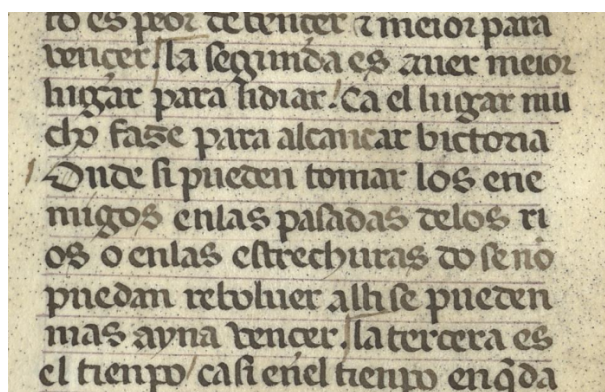 to es peor de vençer ⁊ meior para
vençer. la segunda es auer meior
lugar para lidiar. Ca el lugar mu
cho faze para alcançar victoria
Onde si pueden tomar los ene
migos enlas pasadas delos ri
os o enlas estrechuras do se nõ
puedan reboluer alli se pueden
mas ayna vencer. la tercera es
el tienpo casi enel tienpo en q̃ da